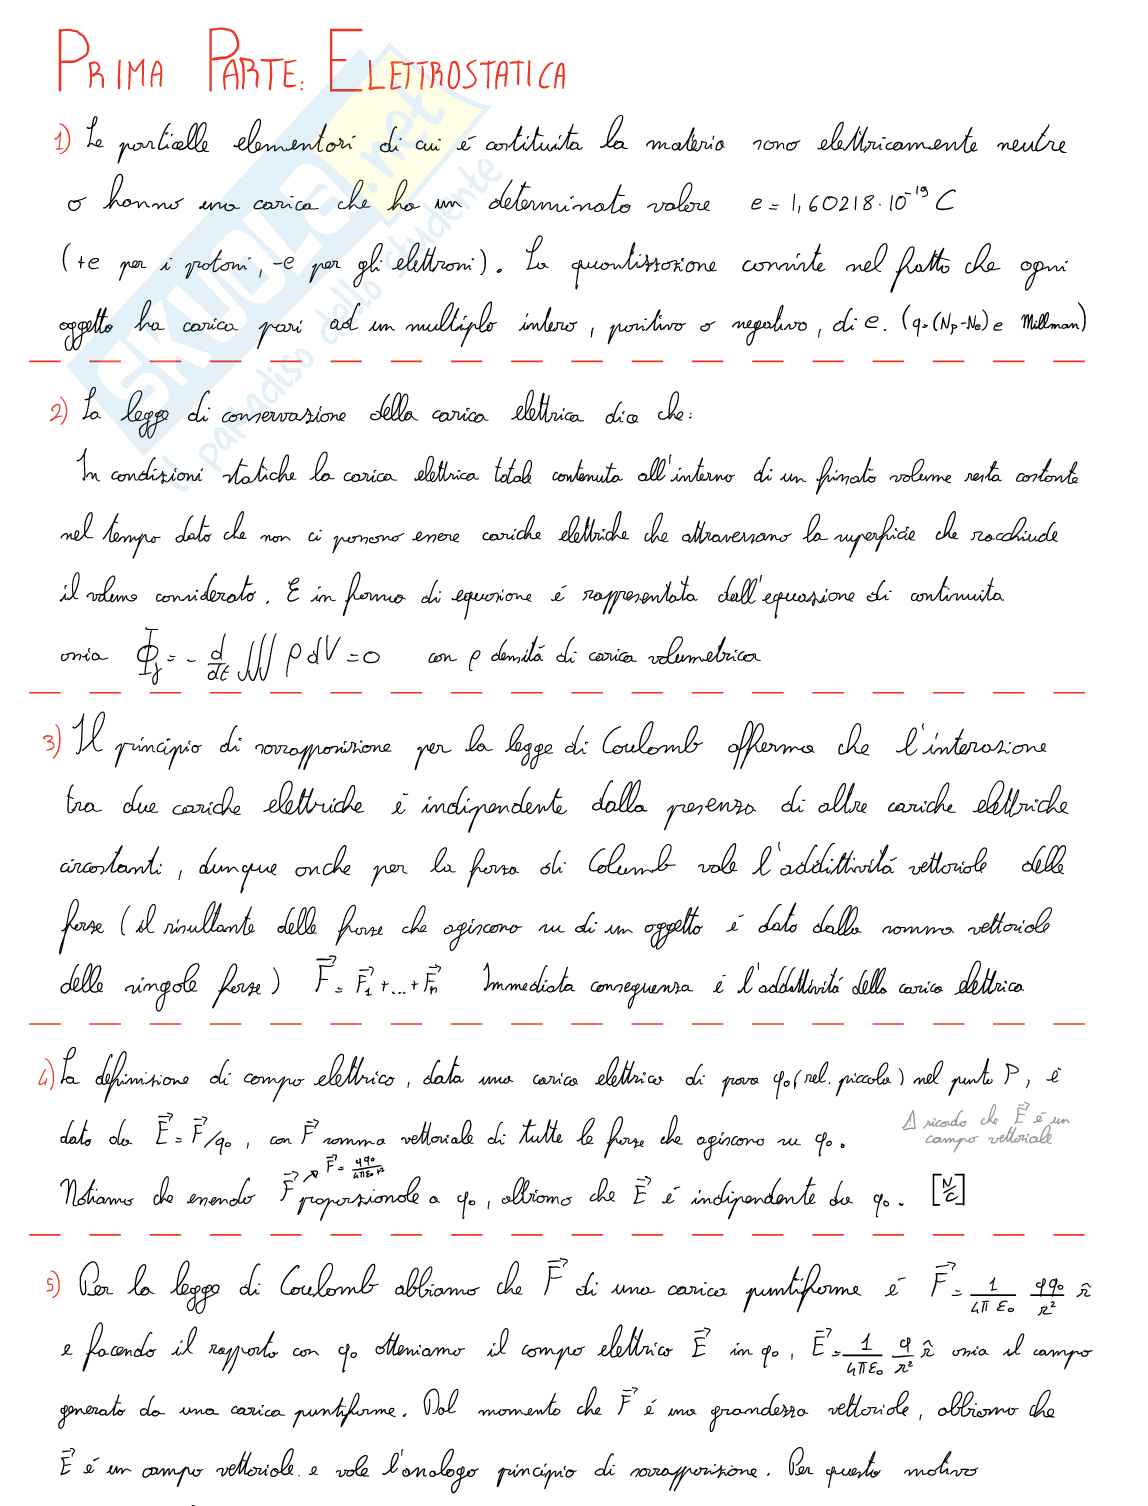 PRIMA PARTE: ELETTROSTATICA
1) Le particelle elementari di cui é costituita la materia sono elettricamente neutre
o hanno una carica che ha un determinato valore e = 1,60218·10⁻¹⁹ C
(+e per i protoni, -e per gli elettroni). La quantizzazione consiste nel fatto che ogni
oggetto ha carica pari ad un multiplo intero, positivo o negativo, di e. (q=(Np-Ne)e Millman)
2) La legge di conservazione della carica elettrica dice che:
In condizioni statiche la carica elettrica totale contenuta all'interno di un fissato volume resta costante
nel tempo dato che non ci possono essere cariche elettriche che attraversano la superficie che racchiude
il volume considerato. E in forma di equazione é rappresentata dall'equazione di continuita
ossia Φ_J = - d/dt ∭ ρ dV = 0 con ρ densitá di carica volumetrica
3) Il principio di sovrapposizione per la legge di Coulomb afferma che l'interazione
tra due cariche elettriche é indipendente dalla presenza di altre cariche elettriche
circostanti, dunque anche per la forza di Columb vale l'addittivitá vettoriale delle
forze (il risultante delle forze che agiscono su di un oggetto é dato dalla somma vettoriale
delle singole forze) F⃗ = F⃗₁ + ... + F⃗n Immediata conseguenza é l'addittivitá della carica elettrica
4) La definizione di campo elettrico, data una carica elettrica di prova q₀ (rel. piccola) nel punto P, é
dato da E⃗ = F⃗/q₀, con F⃗ somma vettoriale di tutte le forze che agiscono su q₀.
⚠ ricordo che E⃗ é un
campo vettoriale
F⃗ = qq₀/4πε₀r²
Notiamo che essendo F⃗ proporzionale a q₀, abbiamo che E⃗ é indipendente da q₀. [N/C]
5) Per la legge di Coulomb abbiamo che F⃗ di una carica puntiforme é F⃗ = 1/4πε₀ qq₀/r² r̂
e facendo il rapporto con q₀ otteniamo il campo elettrico E⃗ in q₀, E⃗ = 1/4πε₀ q/r² r̂ ossia il campo
generato da una carica puntiforme. Dal momento che F⃗ é una grandezza vettoriale, abbiamo che
E⃗ é un campo vettoriale e vale l'analogo principio di sovrapposizione. Per questo motivo
SKUOLA.net
il paradiso dello studente